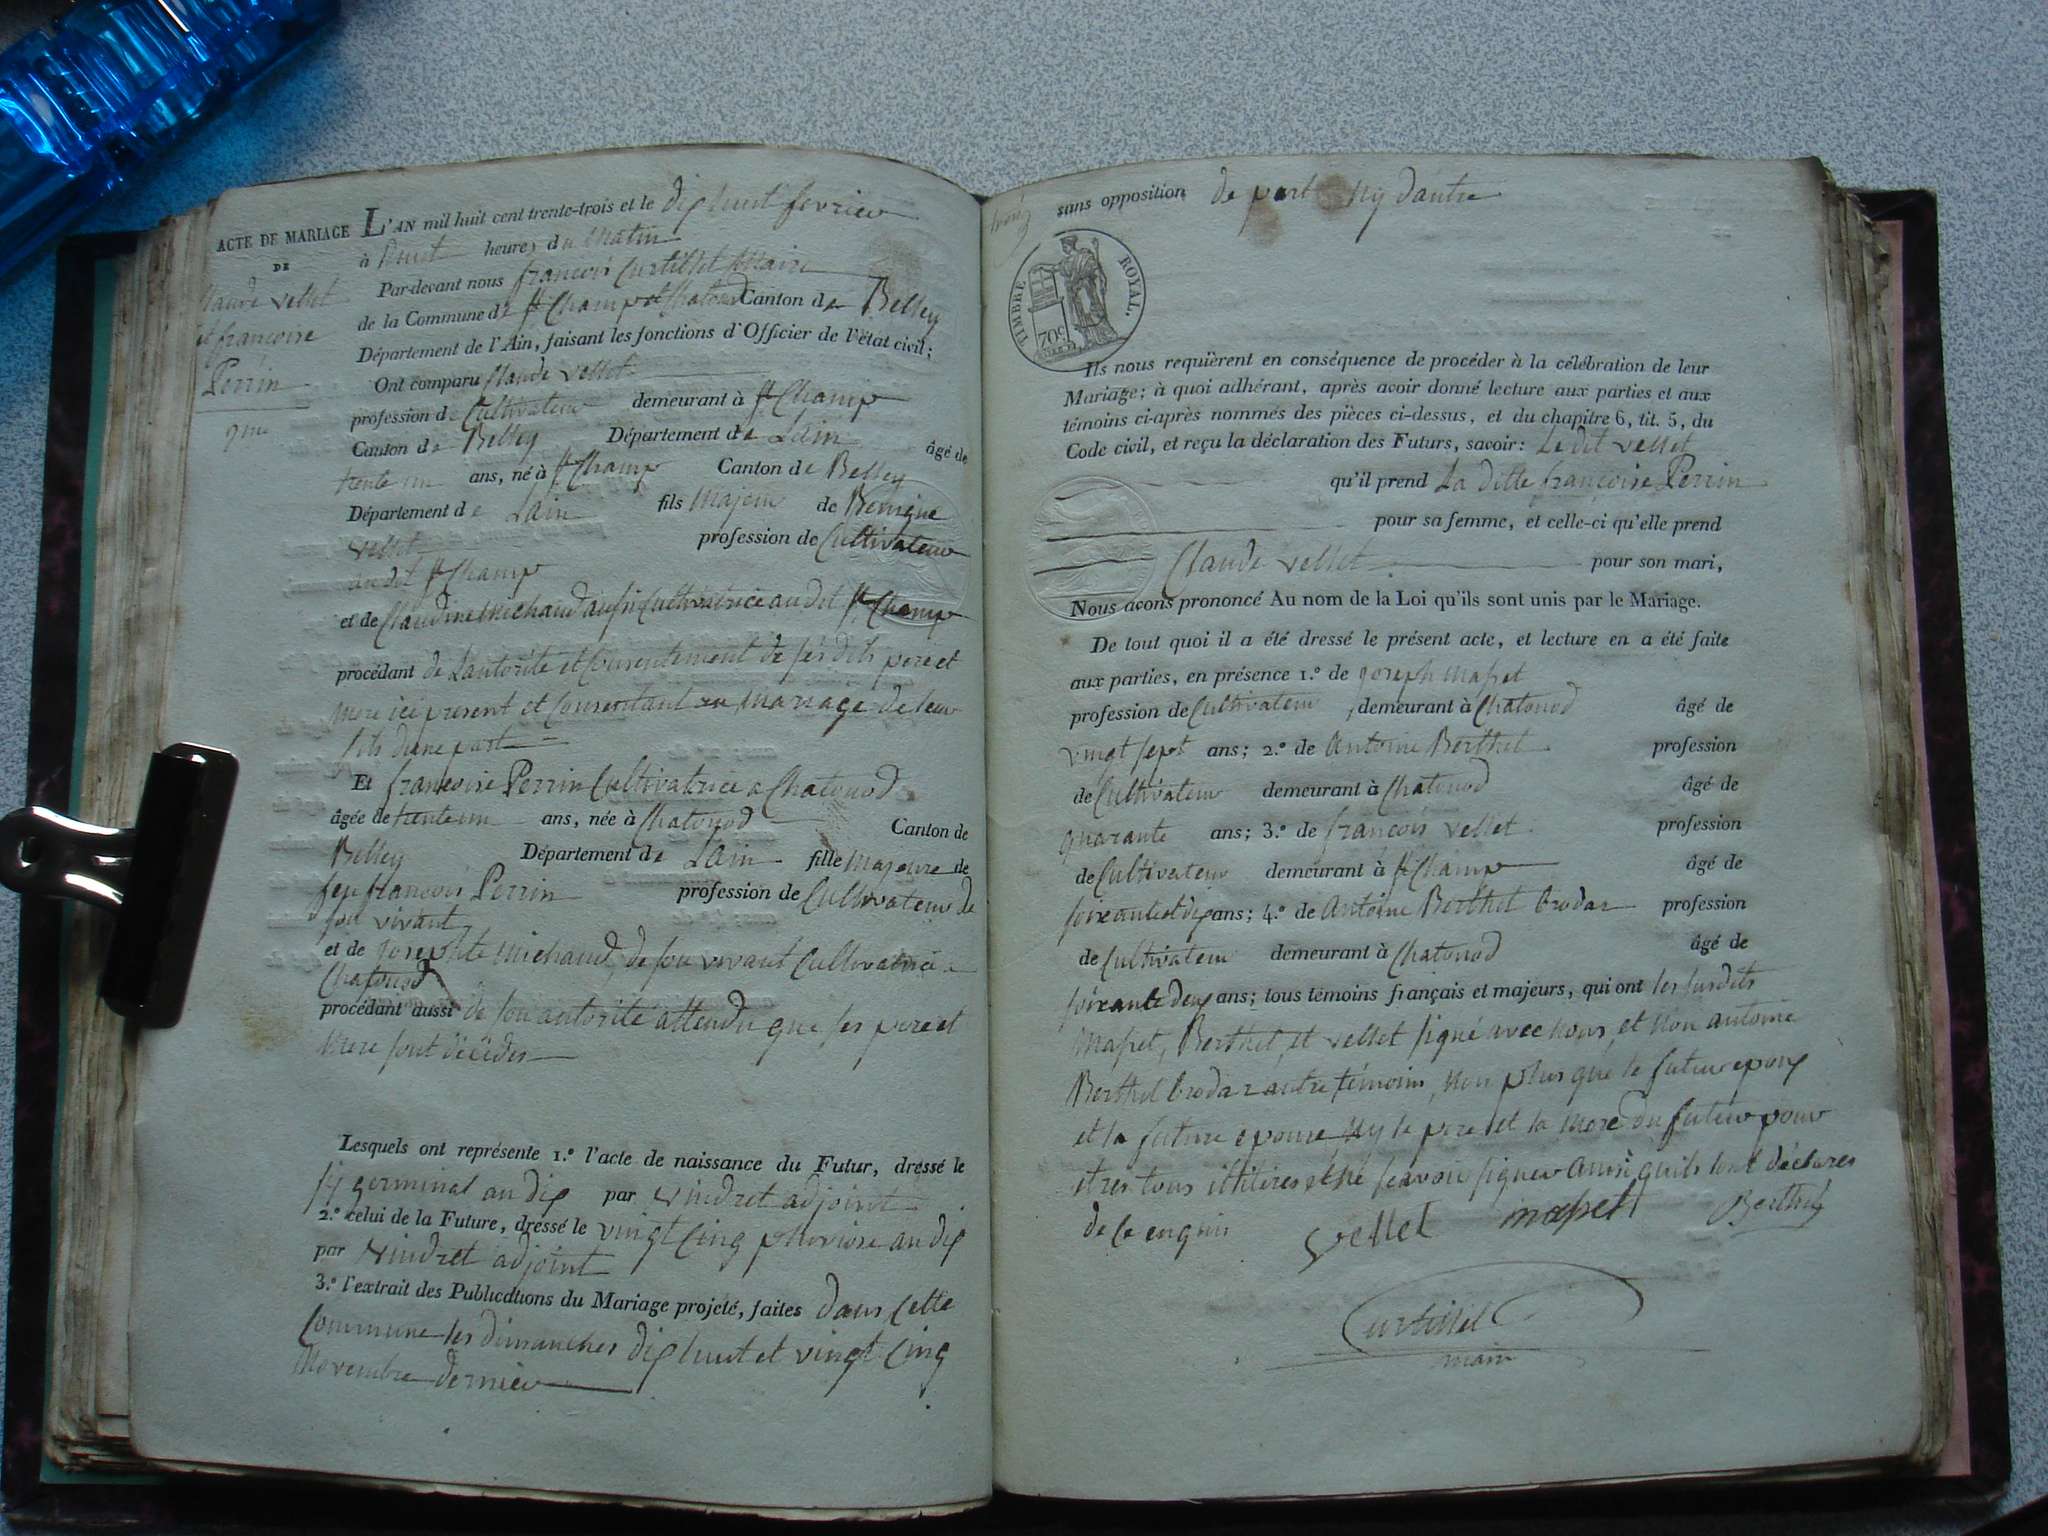 ACTE DE MARIAGE
DE
Claude Vellet
et françoise
Perrin
9me
L'AN mil huit cent trente-trois et le dix huit fevrier
à huit heures du Matin
Par-devant nous françois Curtillet Maire
de la Commune de St Champ et Chatonod Canton de Belley
Département de l'Ain, faisant les fonctions d'Officier de l'état civil;
Ont comparu Claude Vellet
profession de Cultivateur demeurant à St Champ
Canton de Belley Département de Lain âgé de
trente un ans, né à St Champ Canton de Belley
Département de Lain fils Majeur de Benigne
Vellet profession de Cultivateur
au dit St Champ
et de Claudine Michaud aussi Cultivatrice au dit St Champ
procédant de Lautorité et Consentement de ses dits pere et
Mere ici present et Consentant au Mariage de leur
fils d'une part
Et françoise Perrin Cultivatrice a Chatonod
âgée de trente un ans, née à Chatonod Canton de
Belley Département de Lain fille Majeure de
feu francois Perrin profession de Cultivateur de
son vivant
et de Josephte Michaud, de son vivant Cultivatrice a
Chatonod
procédant aussi de son autorité attendu que ses pere et
Mere sont décédés
Lesquels ont représenté 1.º l'acte de naissance du Futur, dressé le
six germinal an dix par Vindret adjoint
2.º celui de la Future, dressé le vingt Cinq pluviose an dix
par Vindret adjoint
3.º l'extrait des Publications du Mariage projeté, faites dans Cette
Commune les dimanches dix huit et vingt Cinq
Novembre dernier
sans opposition de part ny dautre
TIMBRE ROYAL.
70c
Ils nous requièrent en conséquence de procéder à la célébration de leur
Mariage; à quoi adhérant, après avoir donné lecture aux parties et aux
témoins ci-après nommés des pièces ci-dessus, et du chapitre 6, tit. 5, du
Code civil, et reçu la déclaration des Futurs, savoir: Le dit Vellet
qu'il prend La ditte françoise Perrin
pour sa femme, et celle-ci qu'elle prend
Claude Vellet pour son mari,
Nous avons prononcé Au nom de la Loi qu'ils sont unis par le Mariage.
De tout quoi il a été dressé le présent acte, et lecture en a été faite
aux parties, en présence 1.º de joseph Masset
profession de Cultivateur, demeurant à Chatonod âgé de
vingt sept ans; 2.º de Antoine Berthet profession
de Cultivateur demeurant à Chatonod âgé de
quarante ans; 3.º de françois Vellet profession
de Cultivateur demeurant à St Champ âgé de
soixante et dix ans; 4.º de Antoine Berthet Brodaz profession
de Cultivateur demeurant à Chatonod âgé de
soixante deux ans; tous témoins français et majeurs, qui ont les susdits
Masset, Berthet, et Vellet signé avec nous, et Non antoine
Berthet Brodaz autre témoins, Non plus que le futur epoux
et la future epouse Ny le pere et la Mere du futeur pour
etres tous illitères et Ne scavoir signer Ainsi quils l'ont déclares
de Ce enquis Vellet Masset Berthet
Curtillet
maire